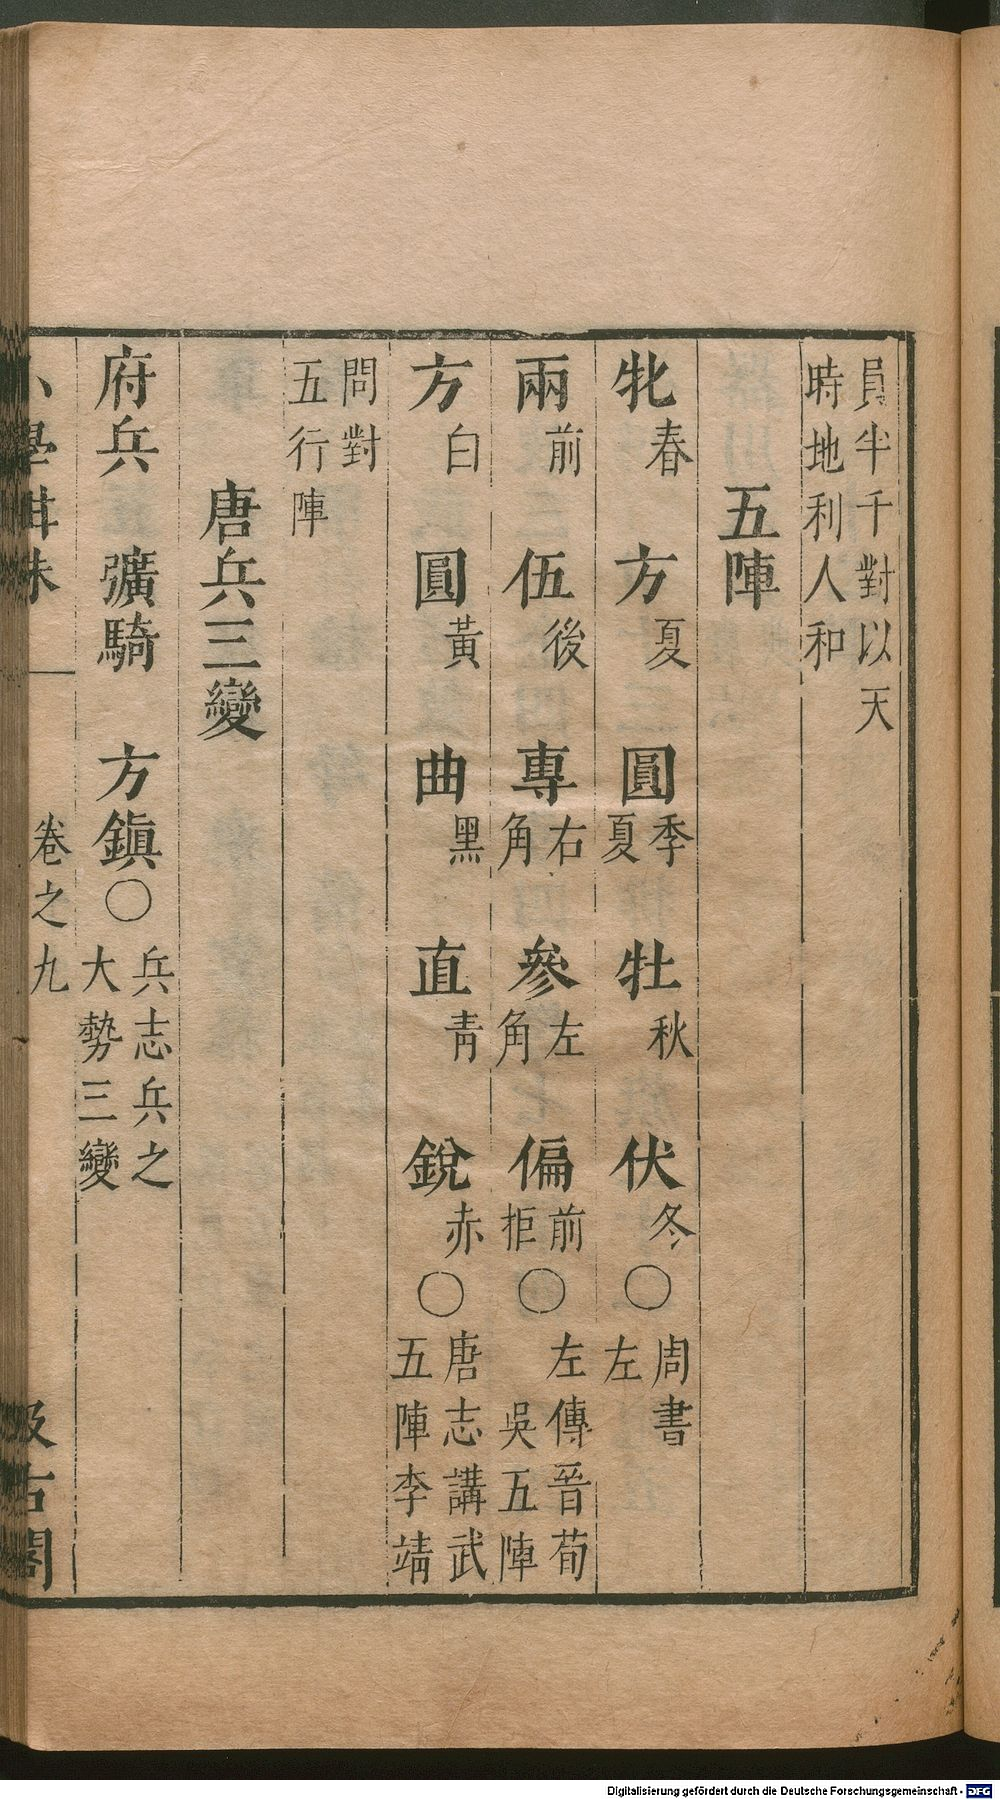 員半千對以天
時地利人和
五陣
牝春 方夏 圓季夏 牡秋 伏冬〇周書左
兩前 伍後 專右角 參左角 偏前拒〇左傳晉荀吳五陣
方白 圓黃 曲黑 直青 銳赤〇唐志講武五陣李靖
問對五行陣
唐兵三變
府兵 彍騎 方鎮〇兵志兵之大勢三變
小學紺珠 卷之九 汲古閣
Digitalisierung gefördert durch die Deutsche Forschungsgemeinschaft - DFG